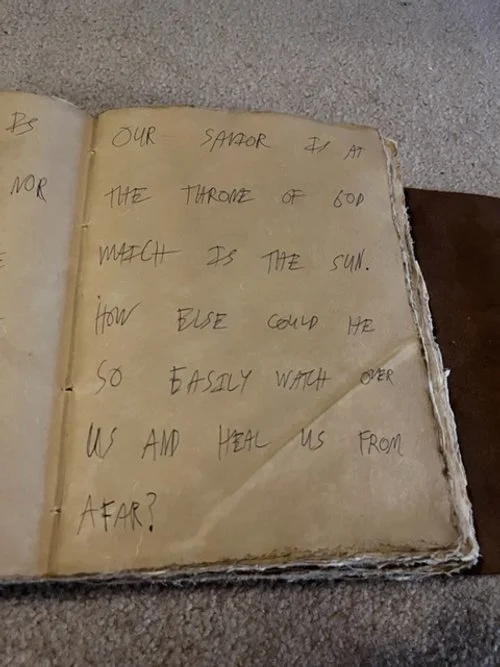 IS
NOR
OUR SAVIOR IS AT
THE THRONE OF GOD
WHICH IS THE SUN.
HOW ELSE COULD HE
SO EASILY WATCH OVER
US AND HEAL US FROM
AFAR?